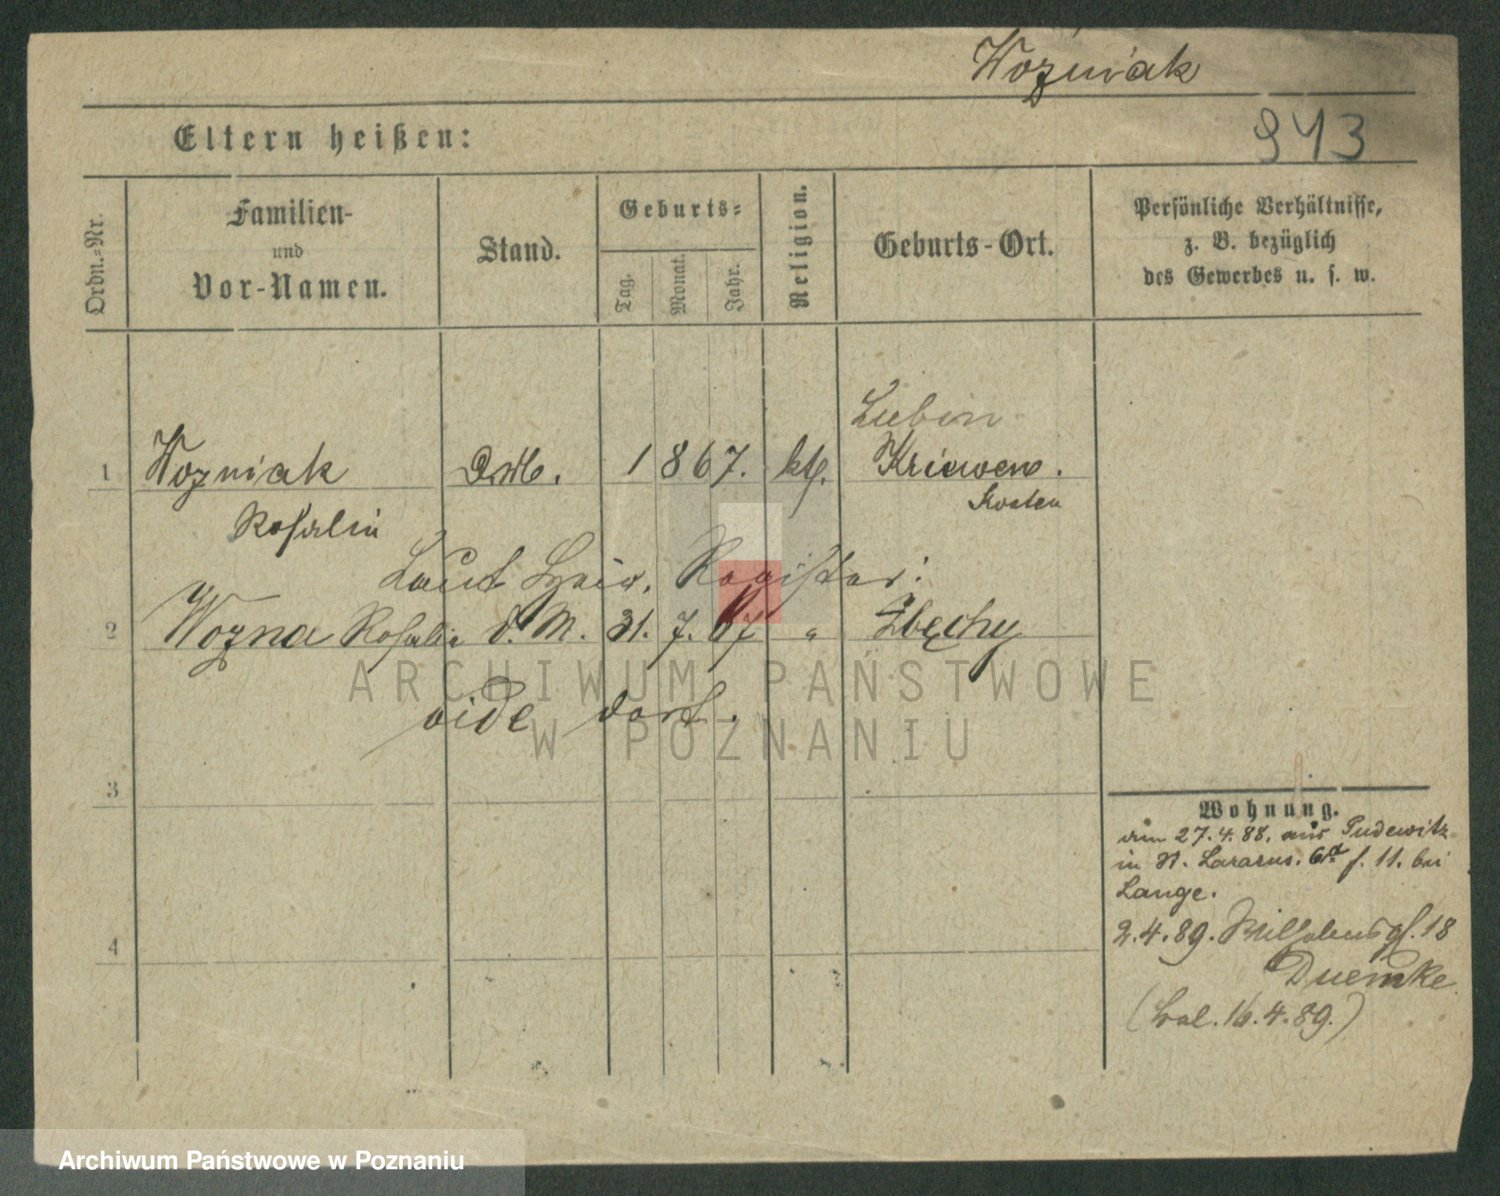 Wozniak
Eltern heißen:
943
Ordn.-Nr.
Familien-
und
Vor-Namen.
Stand.
Geburts-
Tag.
Monat.
Jahr.
Religion.
Geburts-Ort.
Persönliche Verhältnisse,
z. B. bezüglich
des Gewerbes u. s. w.
Lubin
1 Wozniak 1867. kth. Kriewen.
Rosalie Kosten
Laut Register:
2 Wozna Rosalie D. M. 31. 7. 67 " Zbęchy
vide dort.
ARCHIWUM PAŃSTWOWE
W POZNANIU
3
4
Wohnung.
am 27.4.88. aus Pudewitz
in St. Lazarus. 6a f. 11. bei
Lange.
2.4.89. 18
Duemke
16.4.89.)
Archiwum Państwowe w Poznaniu